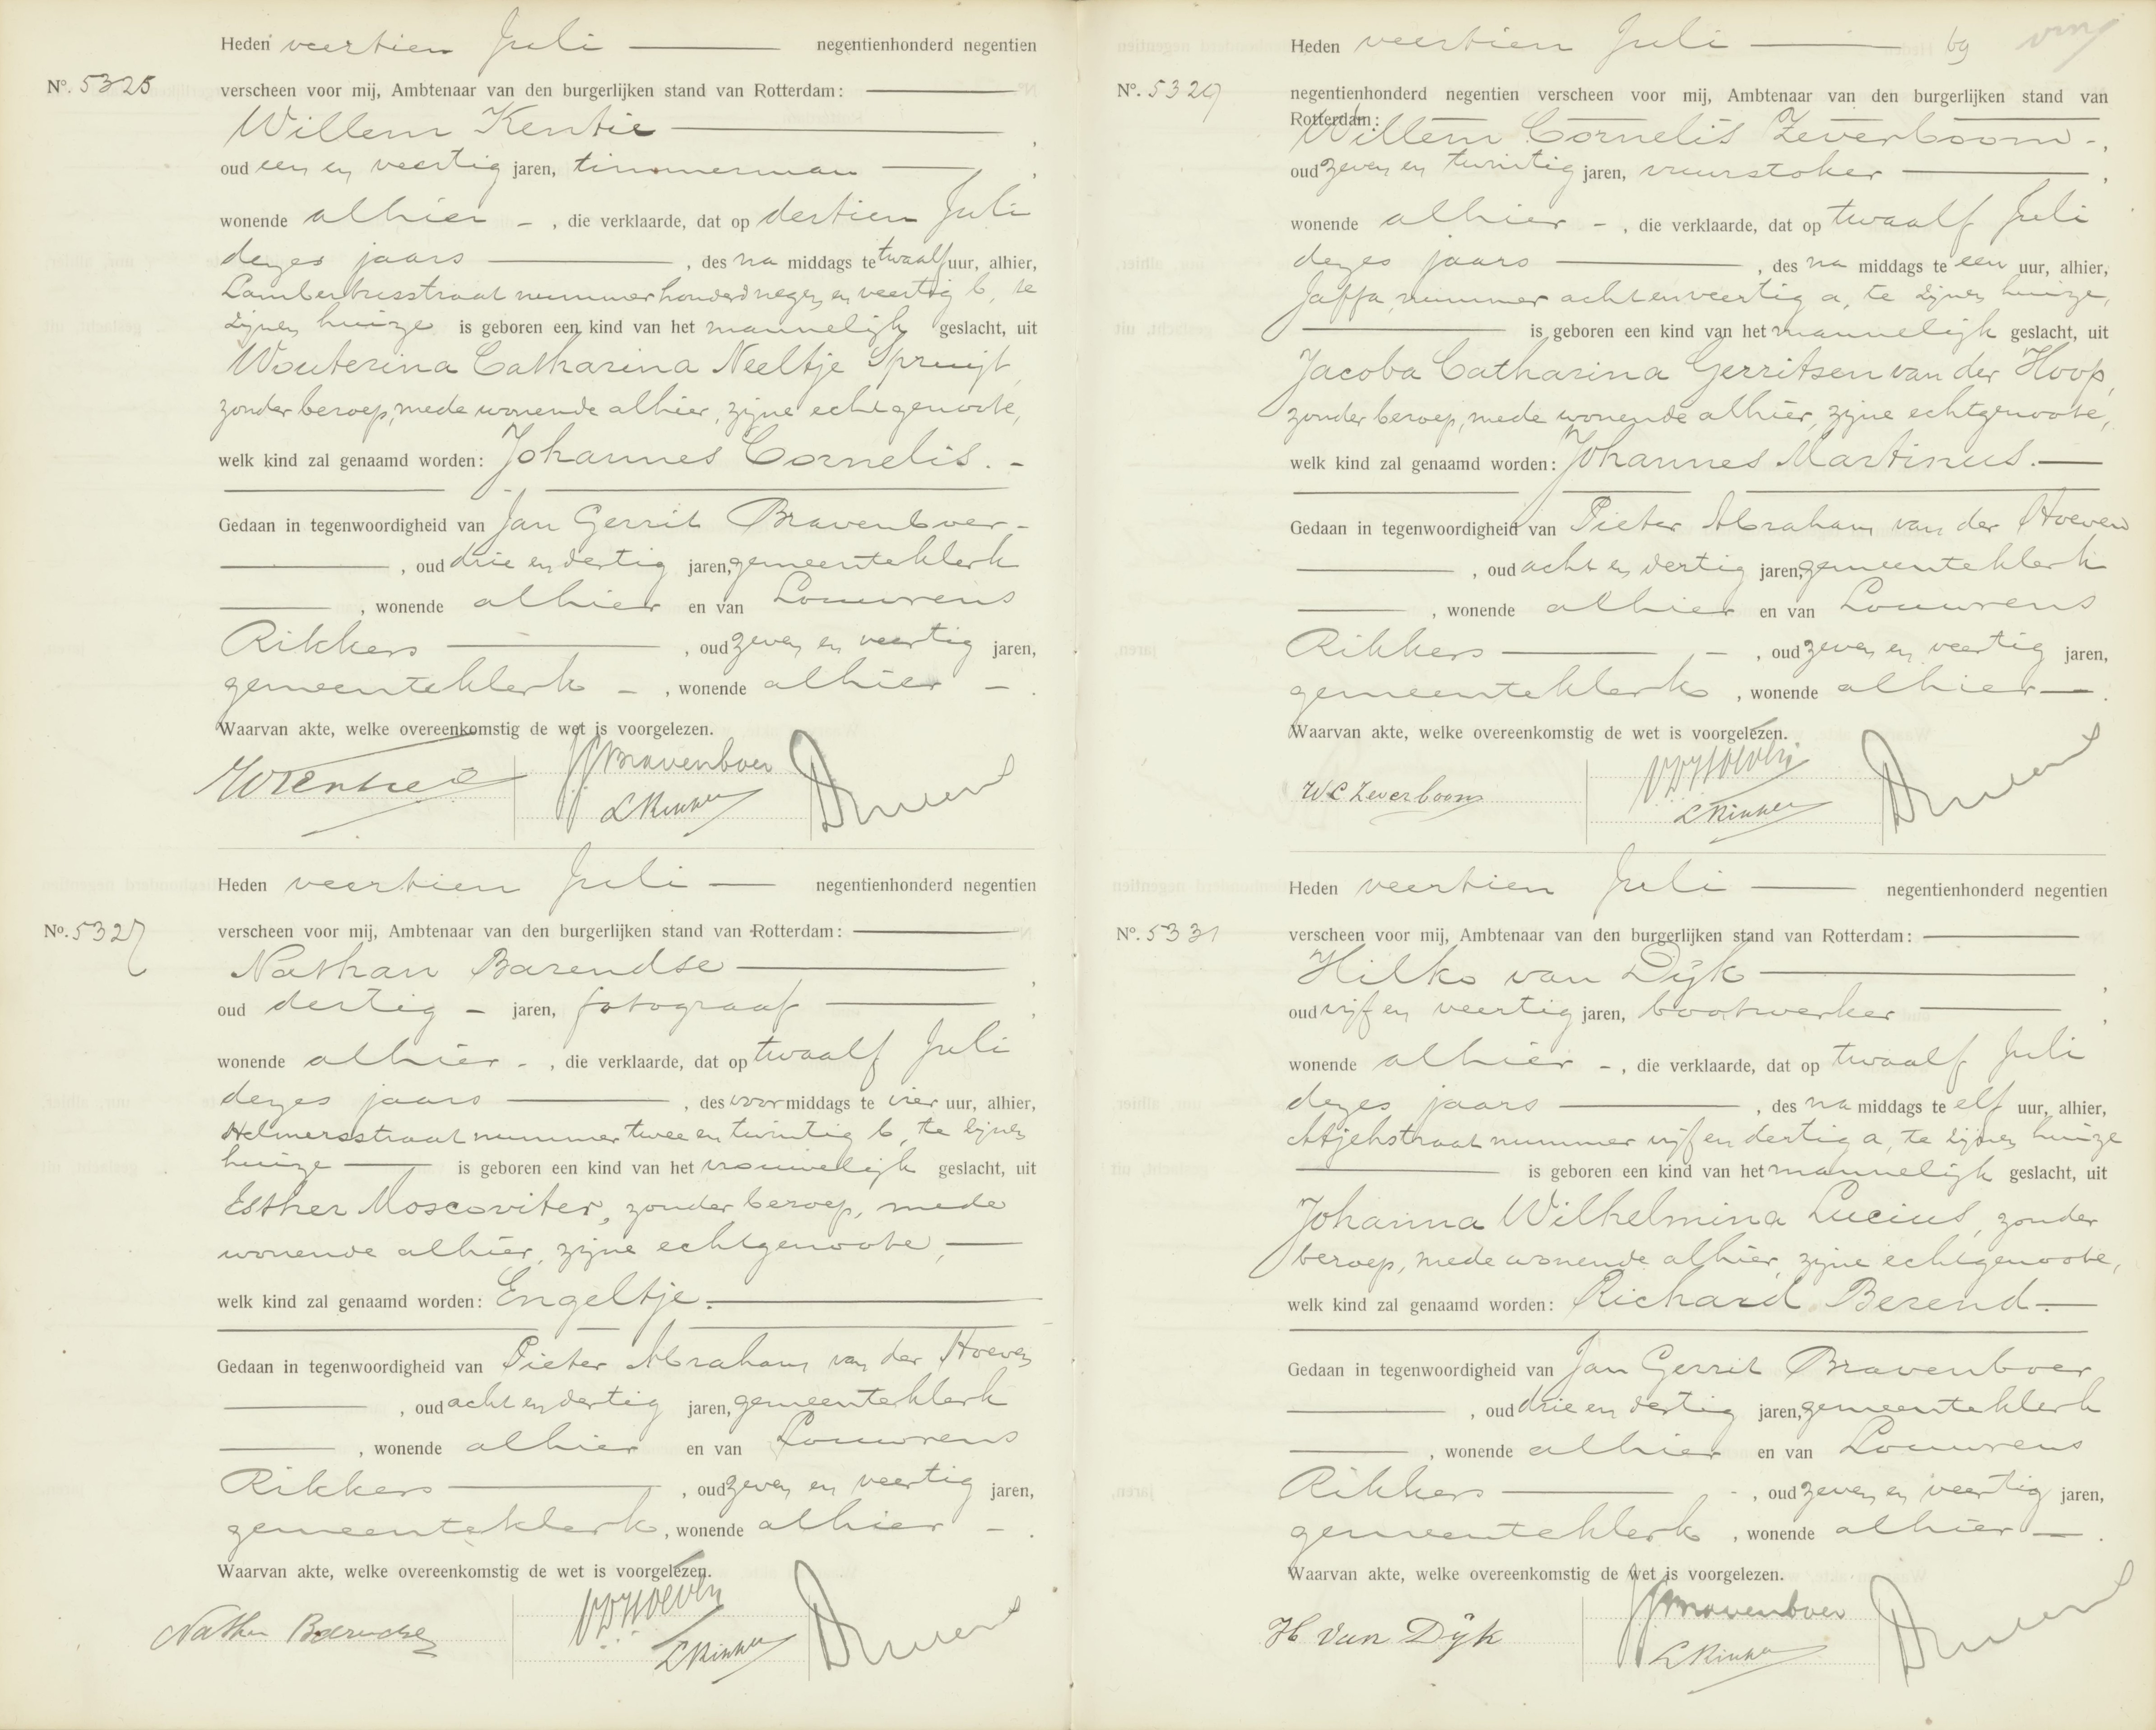 Heden veertien Juli negentienhonderd negentien
No. 5325 verscheen voor mij, Ambtenaar van den burgerlijken stand van Rotterdam:
Willem Kentie
oud een en veertig jaren, timmerman
wonende alhier -, die verklaarde, dat op dertien Juli
dezes jaars, des na middags te twaalf uur, alhier,
Lambertusstraat nummer honderd negen en veertig b, te
zijnen huize is geboren een kind van het mannelijk geslacht, uit
Wouterina Catharina Neeltje Spruijt,
zonder beroep, mede wonende alhier, zijne echtgenoote,
welk kind zal genaamd worden: Johannes Cornelis. -
Gedaan in tegenwoordigheid van Jan Gerrit Bravenboer -
, oud drie en dertig jaren, gemeenteklerk
, wonende alhier en van Louwrens
Rikkers, oud zeven en veertig jaren,
gemeenteklerk -, wonende alhier - .
Waarvan akte, welke overeenkomstig de wet is voorgelezen.
WKentie JGBravenboer
LRikkers
Heden veertien Juli negentienhonderd negentien
No. 5327 verscheen voor mij, Ambtenaar van den burgerlijken stand van Rotterdam:
Nathan Barendse
oud dertig - jaren, fotograaf
wonende alhier -, die verklaarde, dat op twaalf Juli
dezes jaars, des voormiddags te vier uur, alhier,
Helmersstraat nummer twee en twintig b, te zijnen
huize is geboren een kind van het vrouwelijk geslacht, uit
Esther Moscoviter, zonder beroep, mede
wonende alhier, zijne echtgenoote,
welk kind zal genaamd worden: Engeltje.
Gedaan in tegenwoordigheid van Pieter Abraham van der Hoeven
, oud acht en dertig jaren, gemeenteklerk
, wonende alhier en van Louwrens
Rikkers, oud zeven en veertig jaren,
gemeenteklerk, wonende alhier - .
Waarvan akte, welke overeenkomstig de wet is voorgelezen.
Nathan Barendse PvdHoeven
LRikkers
Heden veertien Juli 69
No. 5329 negentienhonderd negentien verscheen voor mij, Ambtenaar van den burgerlijken stand van
Rotterdam:
Willem Cornelis Zeverboom -,
oud zeven en twintig jaren, vuurstoker
wonende alhier -, die verklaarde, dat op twaalf Juli
dezes jaars, des na middags te een uur, alhier,
Jaffa, nummer acht en veertig a, te zijnen huize,
is geboren een kind van het mannelijk geslacht, uit
Jacoba Catharina Gerritsen van der Hoop,
zonder beroep, mede wonende alhier, zijne echtgenoote,
welk kind zal genaamd worden: Johannes Martinus.
Gedaan in tegenwoordigheid van Pieter Abraham van der Hoeven
, oud acht en dertig jaren, gemeenteklerk
, wonende alhier en van Louwrens
Rikkers -, oud zeven en veertig jaren,
gemeenteklerk, wonende alhier .
Waarvan akte, welke overeenkomstig de wet is voorgelezen.
WC Zeverboom PvdHoeven
LRikkers
Heden veertien Juli negentienhonderd negentien
No. 5331 verscheen voor mij, Ambtenaar van den burgerlijken stand van Rotterdam:
Hilko van Dijk
oud vijf en veertig jaren, bootwerker
wonende alhier -, die verklaarde, dat op twaalf Juli
dezes jaars, des na middags te elf uur, alhier,
Atjehstraat nummer vijf en dertig a, te zijnen huize
is geboren een kind van het mannelijk geslacht, uit
Johanna Wilhelmina Lucius, zonder
beroep, mede wonende alhier, zijne echtgenoote,
welk kind zal genaamd worden: Richard Berend.
Gedaan in tegenwoordigheid van Jan Gerrit Bravenboer
, oud drie en dertig jaren, gemeenteklerk
, wonende alhier en van Louwrens
Rikkers -, oud zeven en veertig jaren,
gemeenteklerk, wonende alhier .
Waarvan akte, welke overeenkomstig de wet is voorgelezen.
H van Dijk JGBravenboer
LRikkers